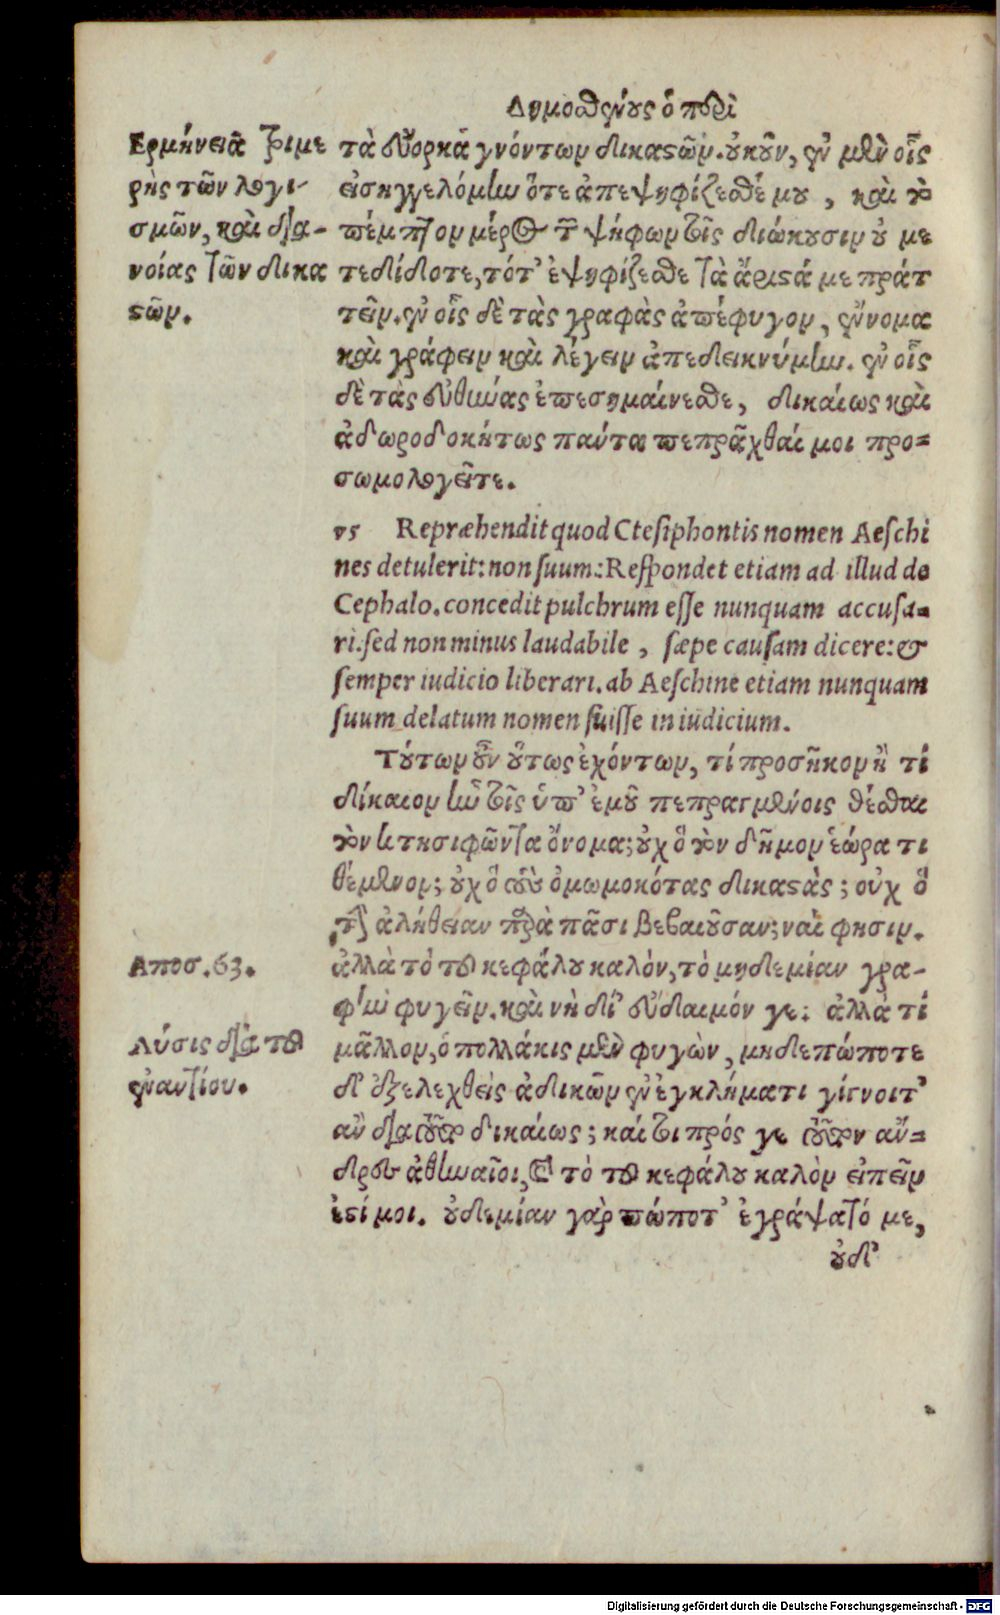 Δημοσθένους ὁ περὶ
Ερμήνεια τριμε
ρὴς τῶν λογι-
σμῶν, καὶ δια-
νοίας τῶν δικα
στῶν.
τὰ εὔορκα γνόντων δικαστῶν. οὐκοῦν, ἐν μὲν οἷς
εἰσηγγελόμην ὅτε ἀπεψηφίζεσθέ μου, καὶ τὸ
πέμπτον μέρος τῶν ψήφων τοῖς διώκουσιν οὐ με
τεδίδοτε, τότ' ἐψηφίζεσθε τὰ ἄριστά με πράτ
τειν. ἐν οἷς δὲ τὰς γραφὰς ἀπέφυγον, ἔννομα
καὶ γράφειν καὶ λέγειν ἀπεδεικνύμην. ἐν οἷς
δὲ τὰς εὐθύνας ἐπεσημαίνεσθε, δικαίως καὶ
ἀδωροδοκήτως πάντα πεπρᾶχθαί μοι προ=
σωμολογεῖτε.
95 Repræhendit quod Ctesiphontis nomen Aeschi
nes detulerit: non suum: Respondet etiam ad illud de
Cephalo. concedit pulchrum esse nunquam accusa=
ri. sed non minus laudabile, sæpe causam dicere: &
semper iudicio liberari. ab Aeschine etiam nunquam
suum delatum nomen fuisse in iudicium.
Τούτων οὖν οὕτως ἐχόντων, τί προσῆκον ἢ τί
δίκαιον ἦν τοῖς ὑπ' ἐμοῦ πεπραγμένοις θέσθαι
τὸν κτησιφῶντα ὄνομα; οὐχ ὃ τὸν δῆμον ἑώρα τι
θέμενον; οὐχ ὃ τοὺς ὀμωμοκότας δικαστάς; οὐχ ὃ
τὴν ἀλήθειαν παρὰ πᾶσι βεβαιοῦσαν; ναὶ φησιν.
Αποσ. 63.
ἀλλὰ τὸ τοῦ κεφάλου καλὸν, τὸ μηδεμίαν γρα-
φὴν φυγεῖν. καὶ νὴ δί' εὔδαιμόν γε: ἀλλὰ τί
Λύσις διὰ τοῦ
ἐναντίου.
μᾶλλον, ὁ πολλάκις μὲν φυγὼν, μηδεπώποτε
δ' ἐξελεχθεὶς ἀδικῶν ἐν ἐγκλήματι γίγνοιτ'
ἂν διὰ τοῦτο δικαίως; καίτοι πρός γε τοῦτον ἄν=
δρες ἀθηναῖοι, καὶ τὸ τοῦ κεφάλου καλὸν εἰπεῖν
ἐστί μοι. οὐδεμίαν γὰρ πώποτ' ἐγράψατό με,
οὐδ'
Digitalisierung gefördert durch die Deutsche Forschungsgemeinschaft - DFG